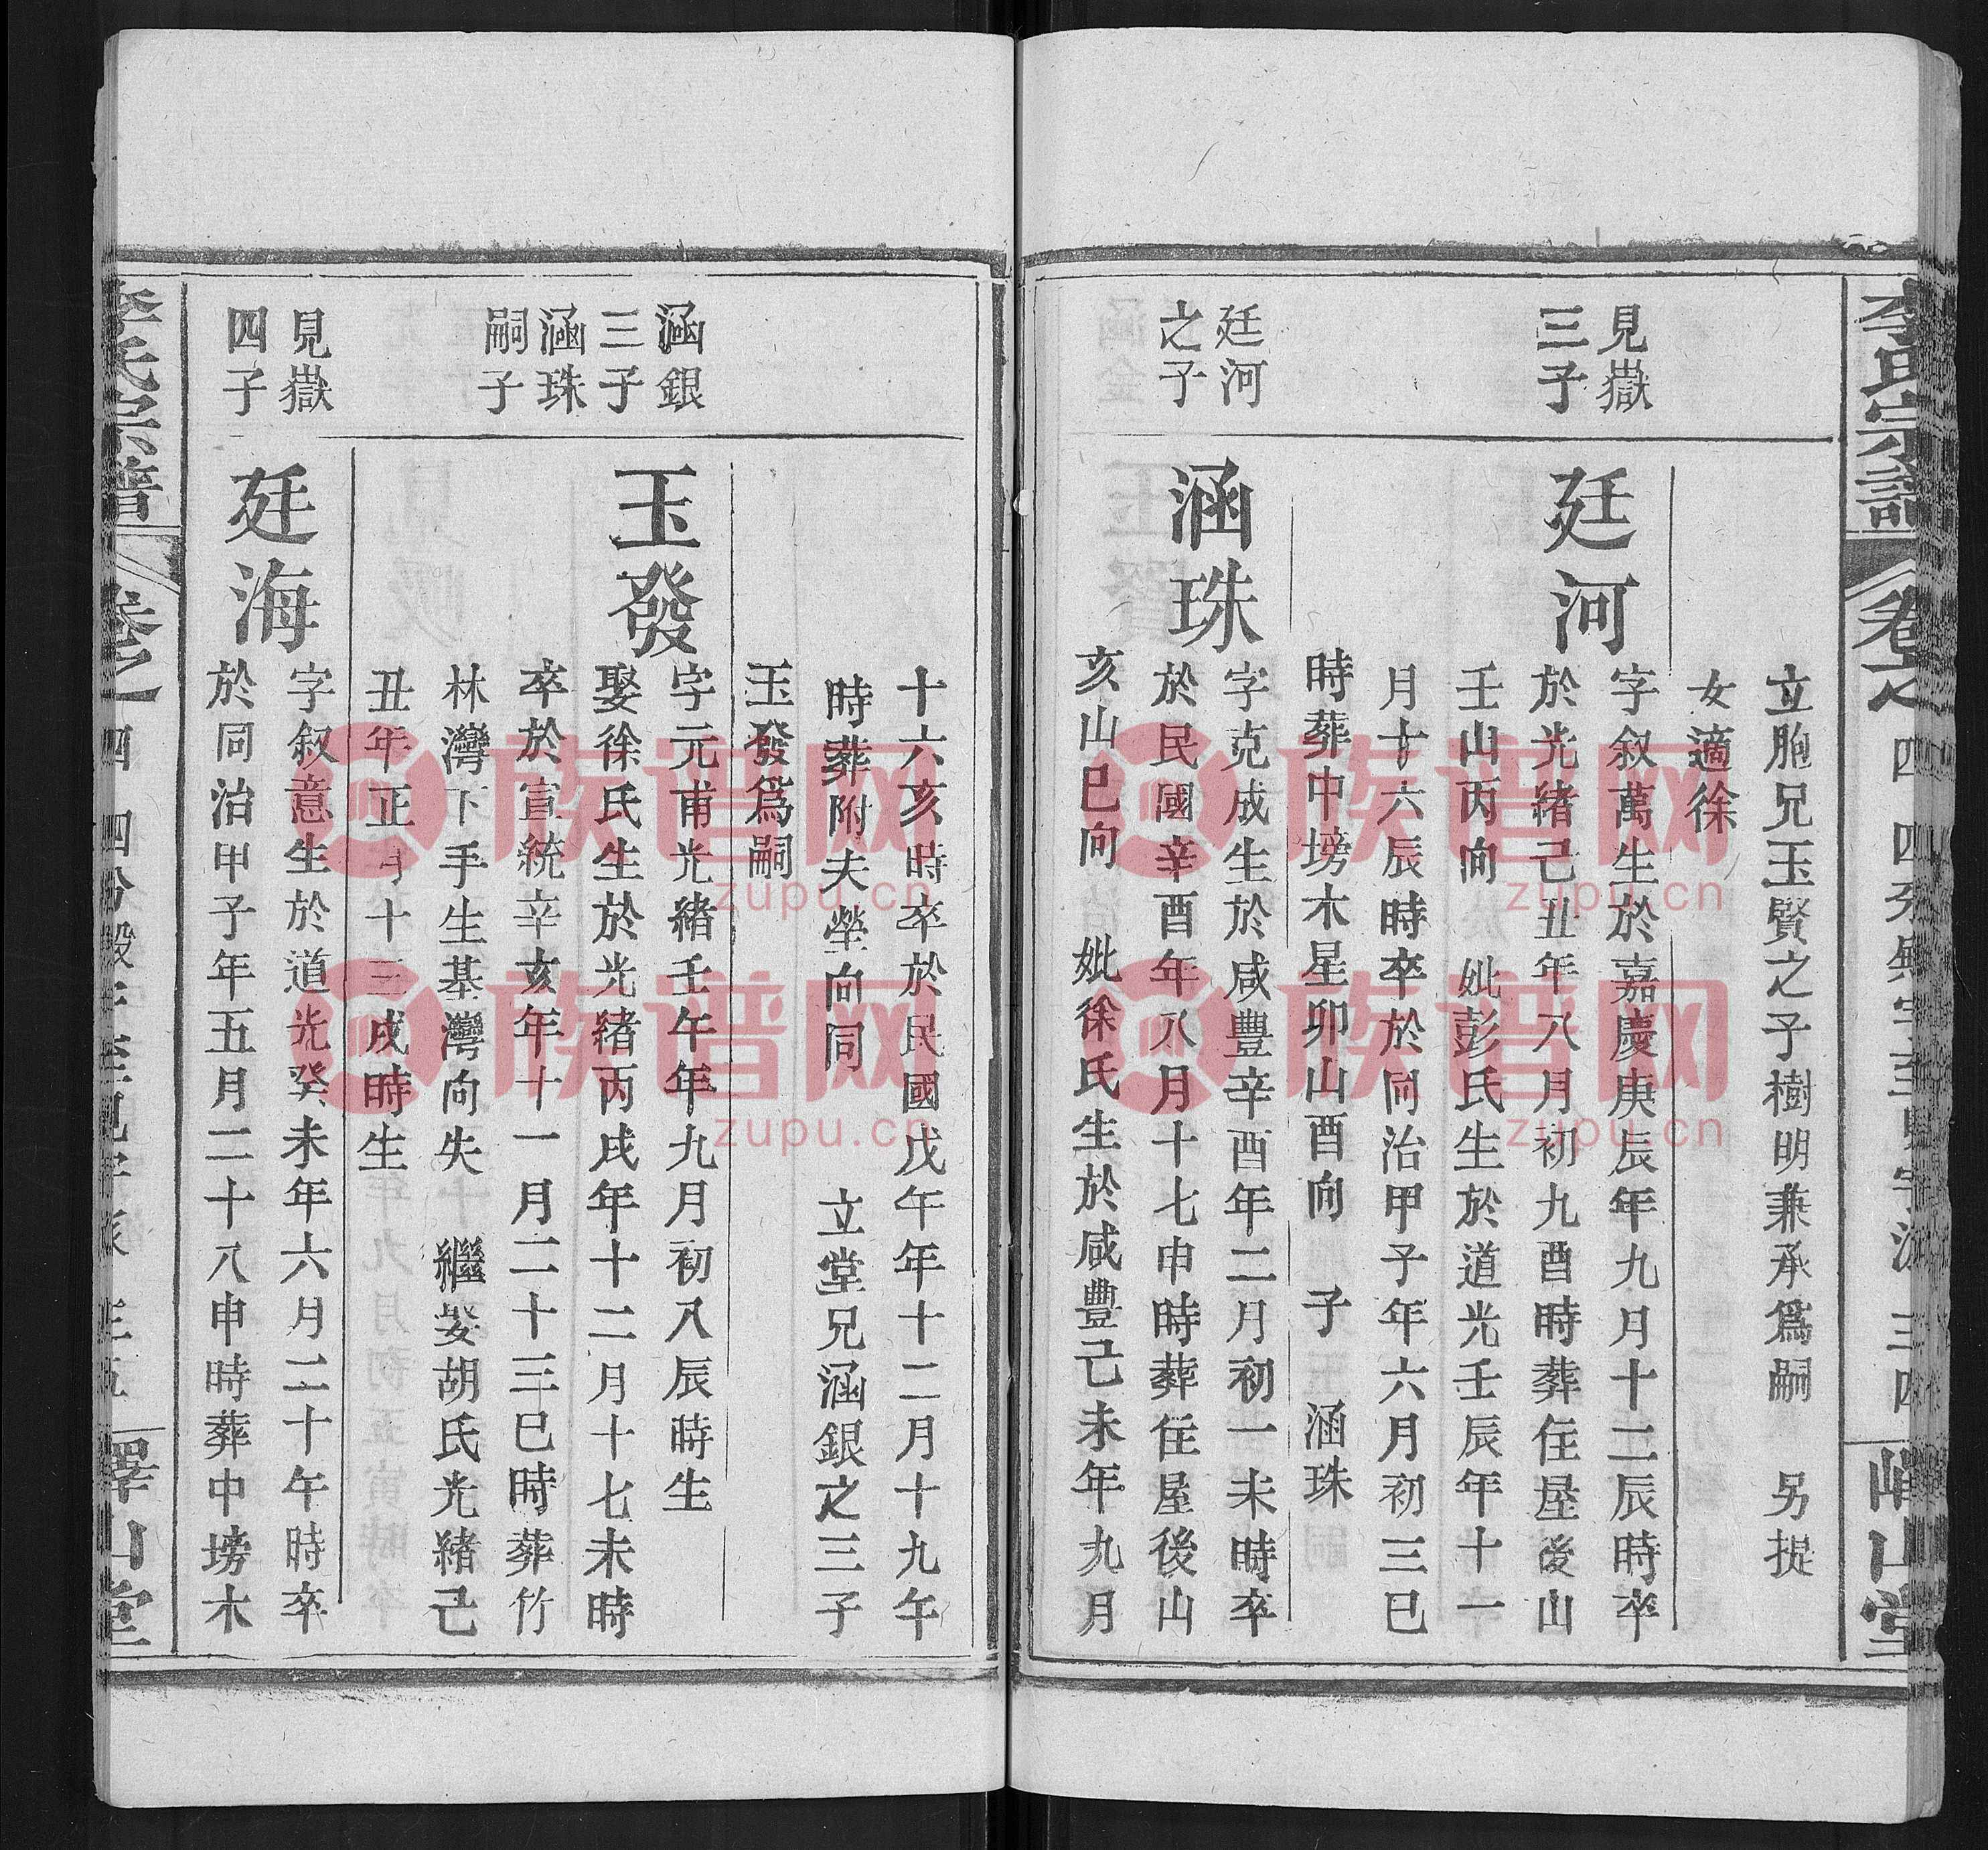 李氏宗譜
卷之
四
三四
嶧山堂
立胞兄玉賢之子樹明兼承爲嗣 另提
女適徐
見嶽
三子
廷河
字叙萬生於嘉慶庚辰年九月十二辰時卒
於光緒己丑年八月初九酉時葬住屋後山
壬山丙向 妣彭氏生於道光壬辰年十一
月十六辰時卒於同治甲子年六月初三巳
時葬中塝木星卯山酉向 子 涵珠
廷河
之子
涵珠
字克成生於咸豐辛酉年二月初一未時卒
於民國辛酉年八月十七申時葬住屋後山
亥山巳向 妣徐氏生於咸豐己未年九月
十六亥時卒於民國戊午年十二月十九午
時葬附夫塋向同 立堂兄涵銀之三子
玉發爲嗣
涵銀
三子
涵珠
嗣子
玉發
字元甫光緒壬午年九月初八辰時生
娶徐氏生於光緒丙戌年十二月十七未時
卒於宣統辛亥年十一月二十三巳時葬竹
林灣下手生基灣向失 繼娶胡氏光緒己
丑年正月十三戌時生
見嶽
四子
廷海
字叙意生於道光癸未年六月二十午時卒
於同治甲子年五月二十八申時葬中塝木
李氏宗譜
卷之
四
嶧山堂
族谱网
zupu.cn
族谱网
zupu.cn
族谱网
zupu.cn
族谱网
zupu.cn